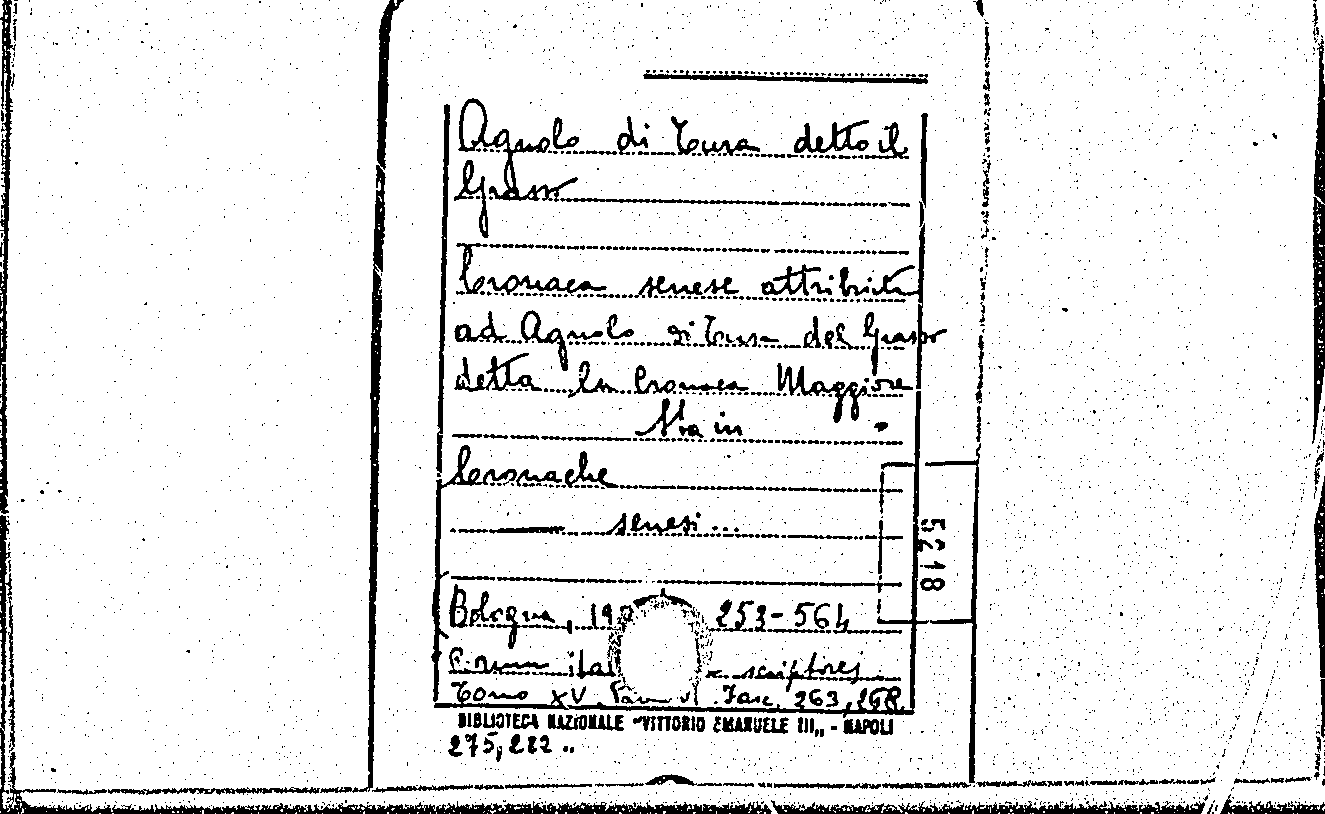 Agnolo di Tura detto il
Grasso
Cronaca senese attribuita
ad Agnolo di Tura del Grasso
detta la Cronaca Maggiore
Sta in
Cronache
senesi...
5218
Bologna, 19 253-564
Rerum ital scriptores
Tomo XV Fasc. 263, 268
BIBLIOTECA NAZIONALE "VITTORIO EMANUELE III„ - NAPOLI
275, 282 ..